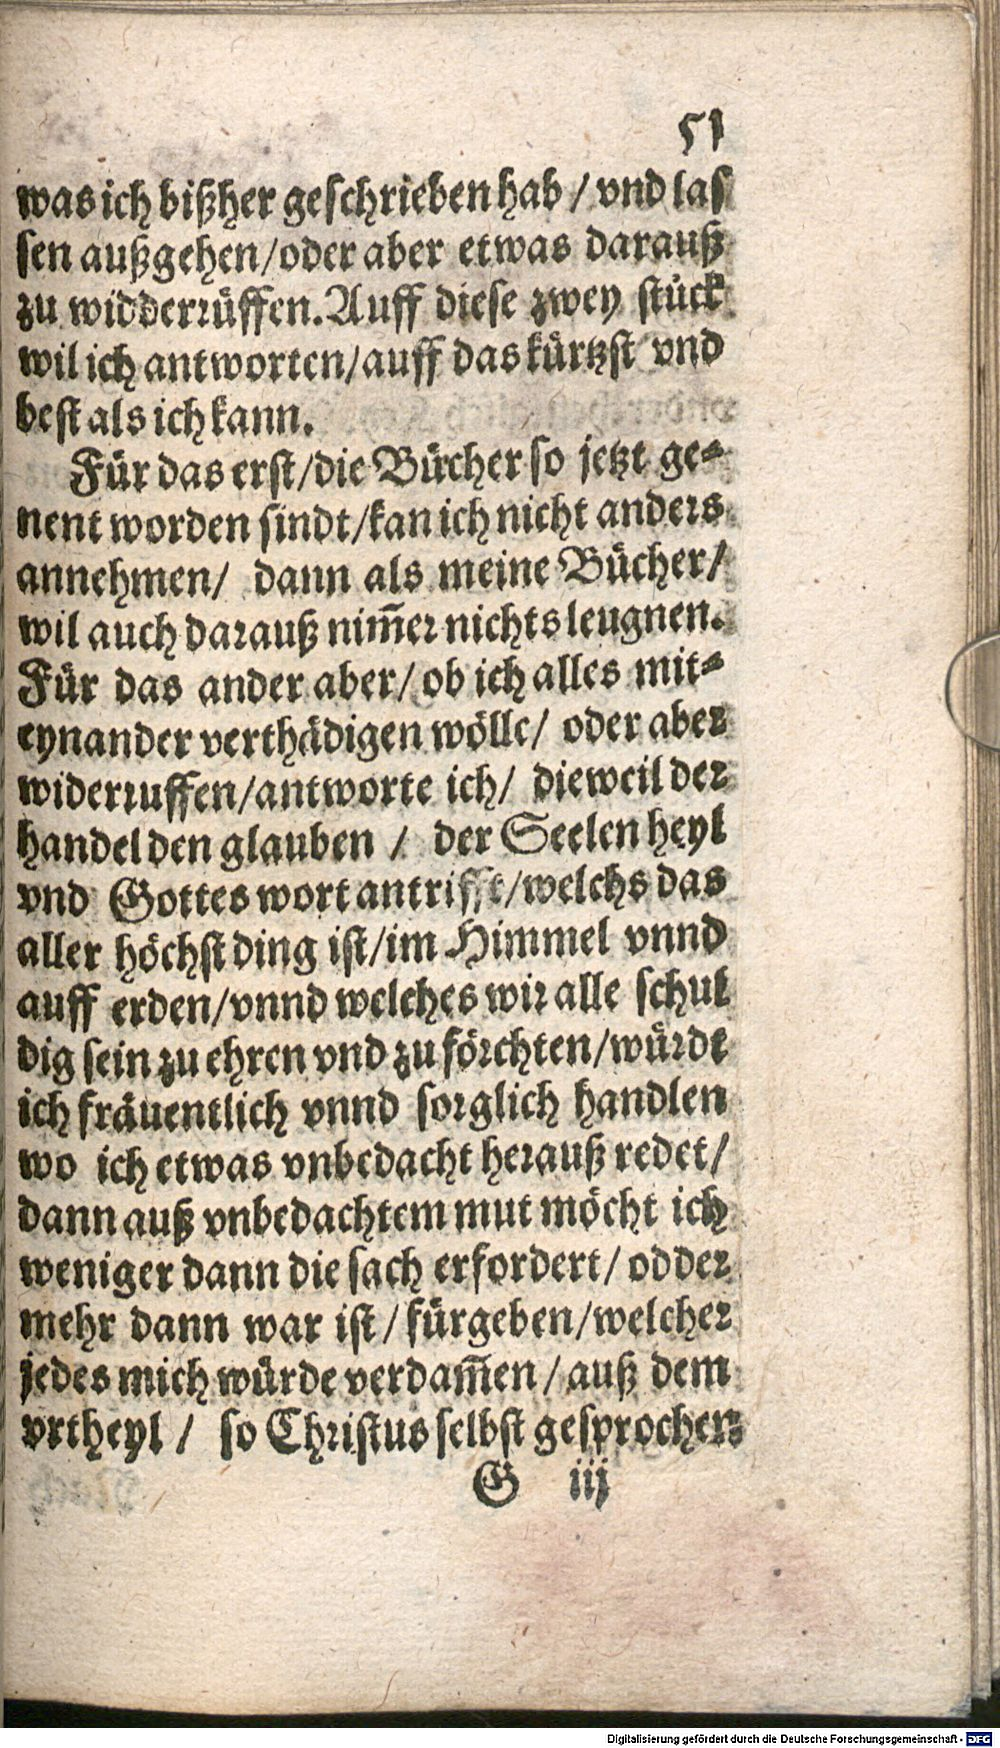 51
was ich bißher geschrieben hab / vnd las
sen außgehen/oder aber etwas darauß
zu widderrüffen. Auff diese zwey stück
wil ich antworten/auff das kürtzst vnd
best als ich kann.
Für das erst/die Bücher so jetzt ge⸗
nent worden sindt/kan ich nicht anders
annehmen/ dann als meine Bücher/
wil auch darauß nim̅er nichts leugnen.
Für das ander aber/ob ich alles mit⸗
eynander verthädigen wölle/ oder aber
widerruffen/antworte ich/ dieweil der
handel den glauben / der Seelen heyl
vnd Gottes wort antrifft/welchs das
aller höchst ding ist/im Himmel vnnd
auff erden/vnnd welches wir alle schul
dig sein zu ehren vnd zu förchten/würdt
ich fräuentlich vnnd sorglich handlen
wo ich etwas vnbedacht herauß redet/
dann auß vnbedachtem mut möcht ich
weniger dann die sach erfordert/ odder
mehr dann war ist/fürgeben/welcher
jedes mich würde verdam̅en/auß dem
vrtheyl / so Christus selbst gesprochen:
G iij
Digitalisierung gefördert durch die Deutsche Forschungsgemeinschaft - DFG